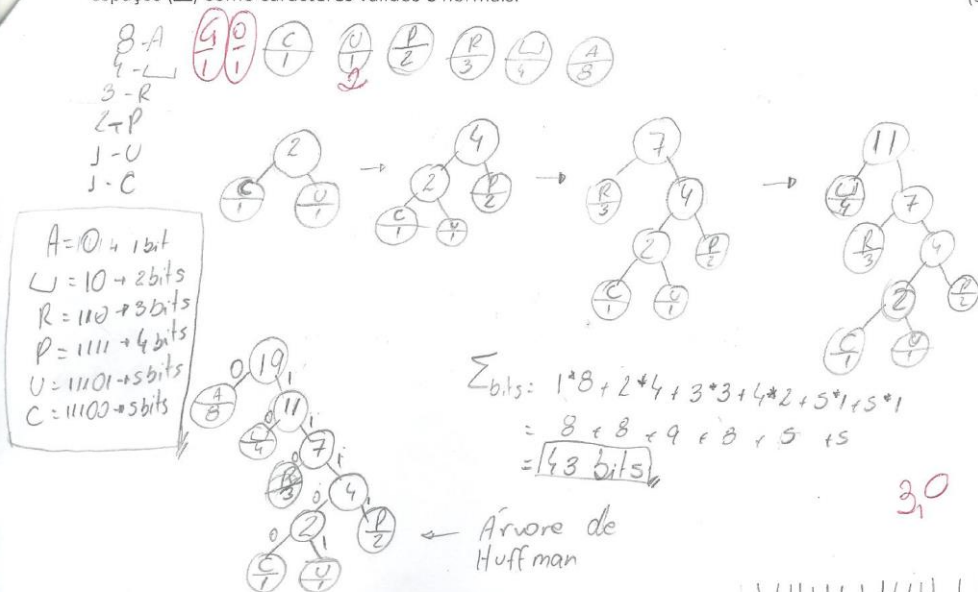 espaços (␣) como caracteres válidos e normais.
8-A
4-␣
3-R
2-P
1-U
1-C
G 1 O 1 C 1 U 1 2 P 2 R 3 ␣ 4 A 8
2 C 1 U 1
→ 4 2 P 2 C 1 U 1
→ 7 R 3 4 2 P 2 C 1 U 1
→ 11 ␣ 4 7 R 3 4 2 P 2 C 1 U 1
A = 0 → 1 bit
␣ = 10 → 2 bits
R = 110 → 3 bits
P = 1111 → 4 bits
U = 11101 → 5 bits
C = 11100 → 5 bits
0 19 1
A 8 0 11 1
␣ 4 0 7 1
R 3 0 4 1
0 2 1 P 2
C 1 U 1
← Árvore de
Huffman
Σbits = 1*8 + 2*4 + 3*3 + 4*2 + 5*1 + 5*1
= 8 + 8 + 9 + 8 + 5 + 5
= 43 bits
3,0